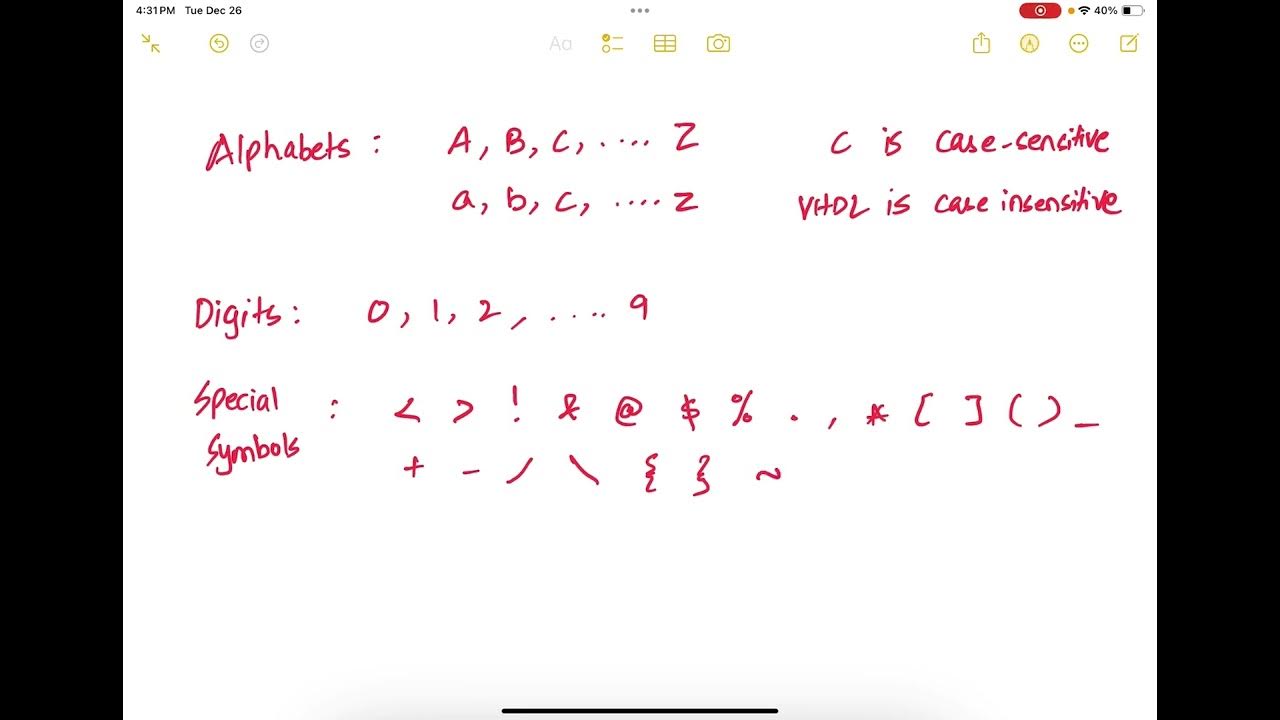 4:31 PM Tue Dec 26
40%
Aa
Alphabets : A, B, C, .... Z C is case-sensitive
a, b, c, .... z VHDL is case insensitive
Digits : 0, 1, 2, .... 9
Special
symbols : < > ! & @ $ % . , * [ ] ( ) _
+ - / \ { } ~